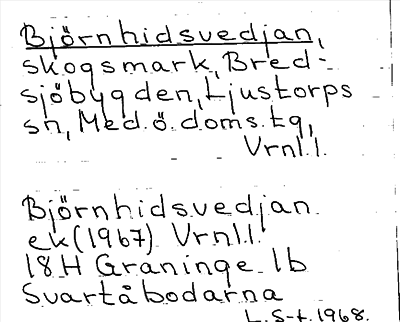 Björnhidsvedjan,
skogsmark, Bred-
sjöbygden, Ljustorps
sn, Med.ö.doms.tg,
Vrnl.l.
Björnhidsvedjan
ek(1967) Vrnl.l.
18H Graninge 1b
Svartåbodarna
L.S-t.1968.